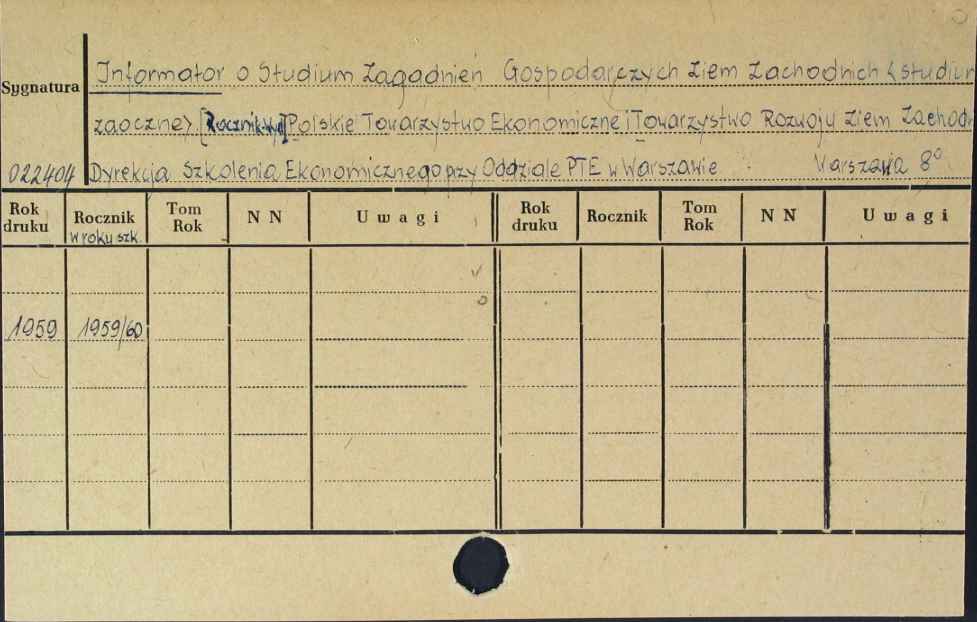 Sygnatura
Informator o Studium Zagadnień Gospodarczych Ziem Zachodnich <studium
zaoczne> [Rocznik] Polskie Towarzystwo Ekonomiczne i Towarzystwo Rozwoju Ziem Zachod.
022404 Dyrekcja Szkolenia Ekonomicznego przy Oddziale PTE w Warszawie Warszawa 8°
Rok druku Rocznik w roku szk. Tom Rok N N Uwagi Rok druku Rocznik Tom Rok N N Uwagi
1959 1959/60